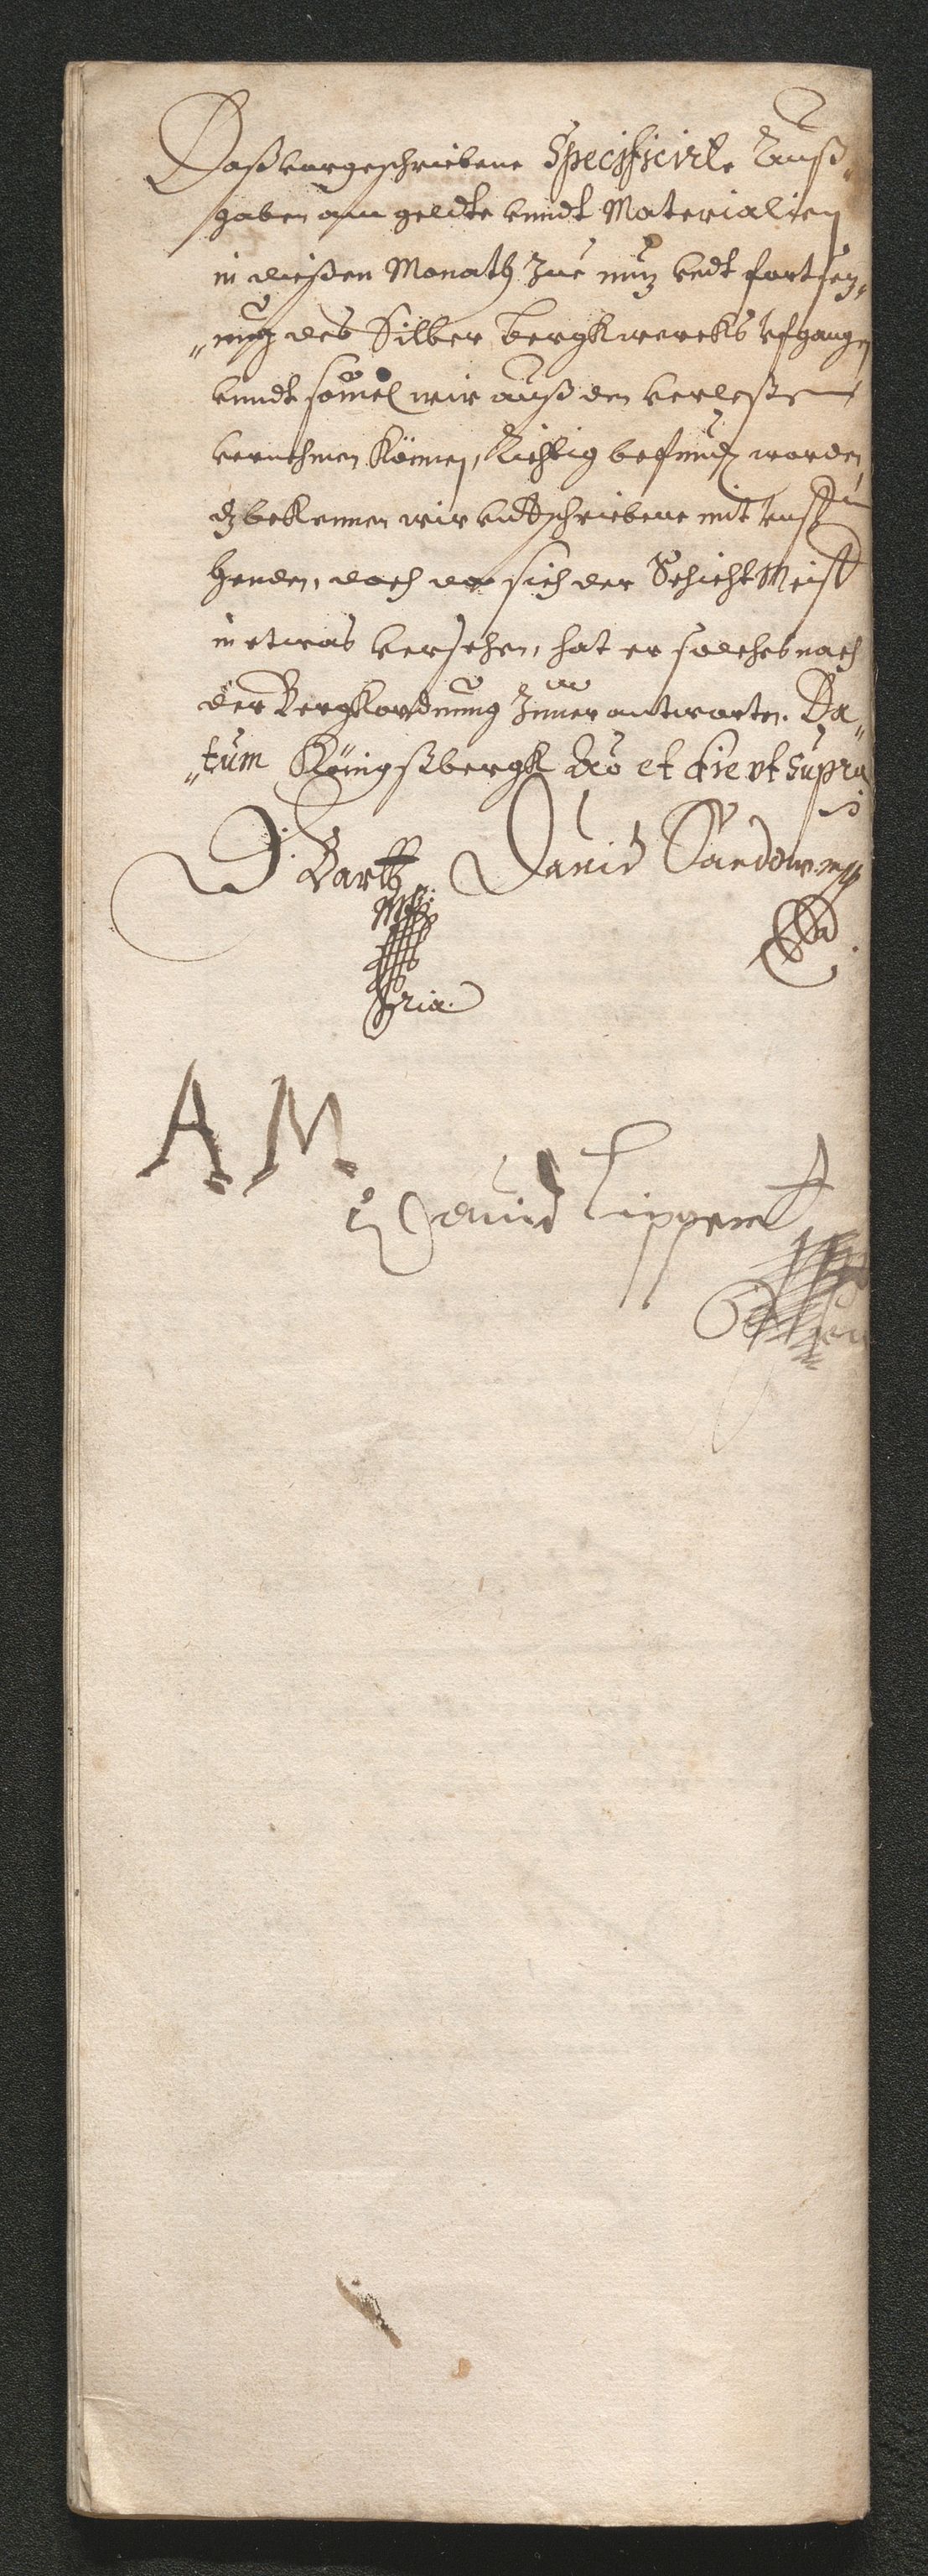 Daß vorgeschriebene Specificirte Auß„
gaben am geldte vnndt Materialien
in dießen Monath zue nuz vndt fortsez„
„ung des Silber bergkwercks vfgangen
vnndt souiel wir auß den verleßen
vernehmen können, Richtig befunden worden,
dz bekennen wir vndtschriebene mit vnsern
henden, doch do sich der Schicht Meist
in etwas versehen, hat er solches nach
der Bergkordnung Zuuerantworten. Da„
„tum Königsbergk Ao et die vt supra
D. Barth David
Mp:
pria.
A M
David Lippert